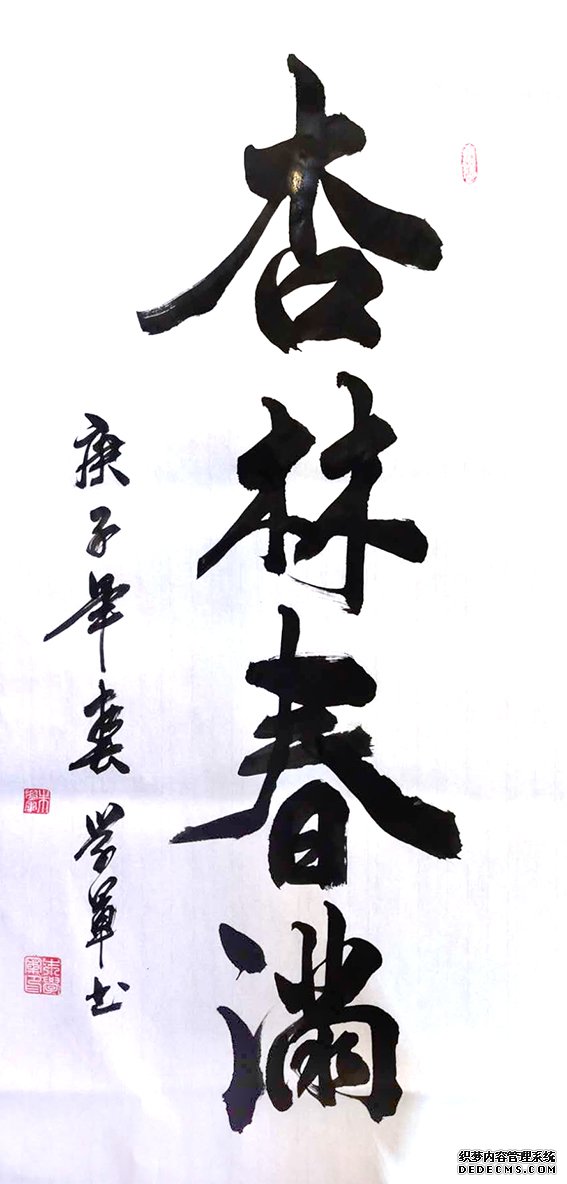 杏林春满
庚子年春 学军书
织梦内容管理系统
DEDECMS.COM